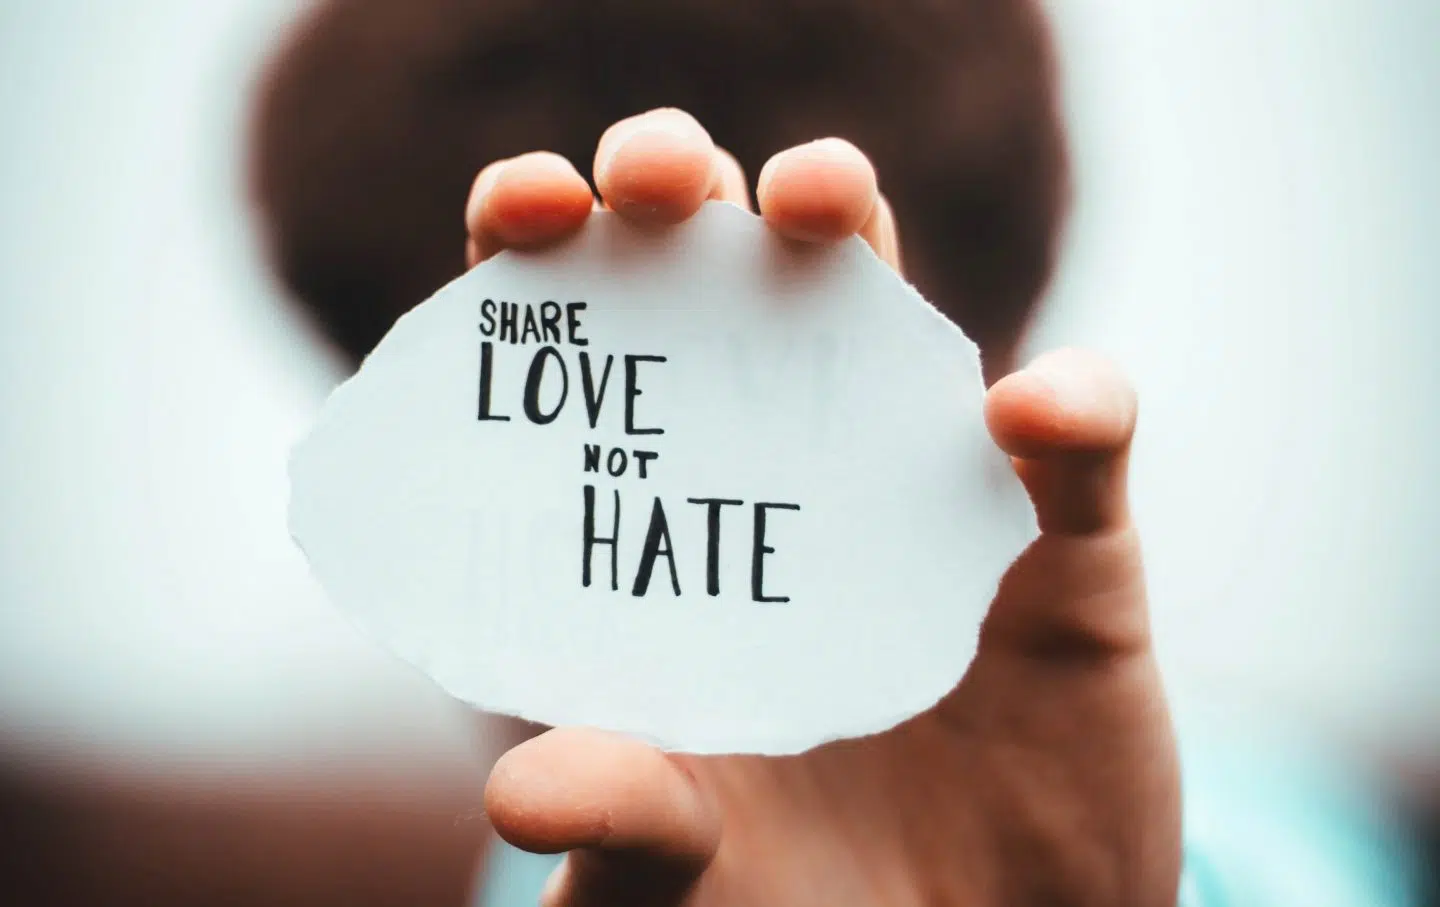 SHARE
LOVE
NOT
HATE